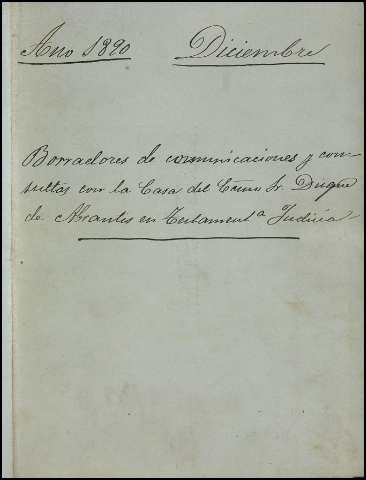 Año 1890 Diciembre
Borradores de comunicaciones y con-
sultas con la Casa del Excmo Sr. Duque
de Abrantes en Testament.ª Judicia